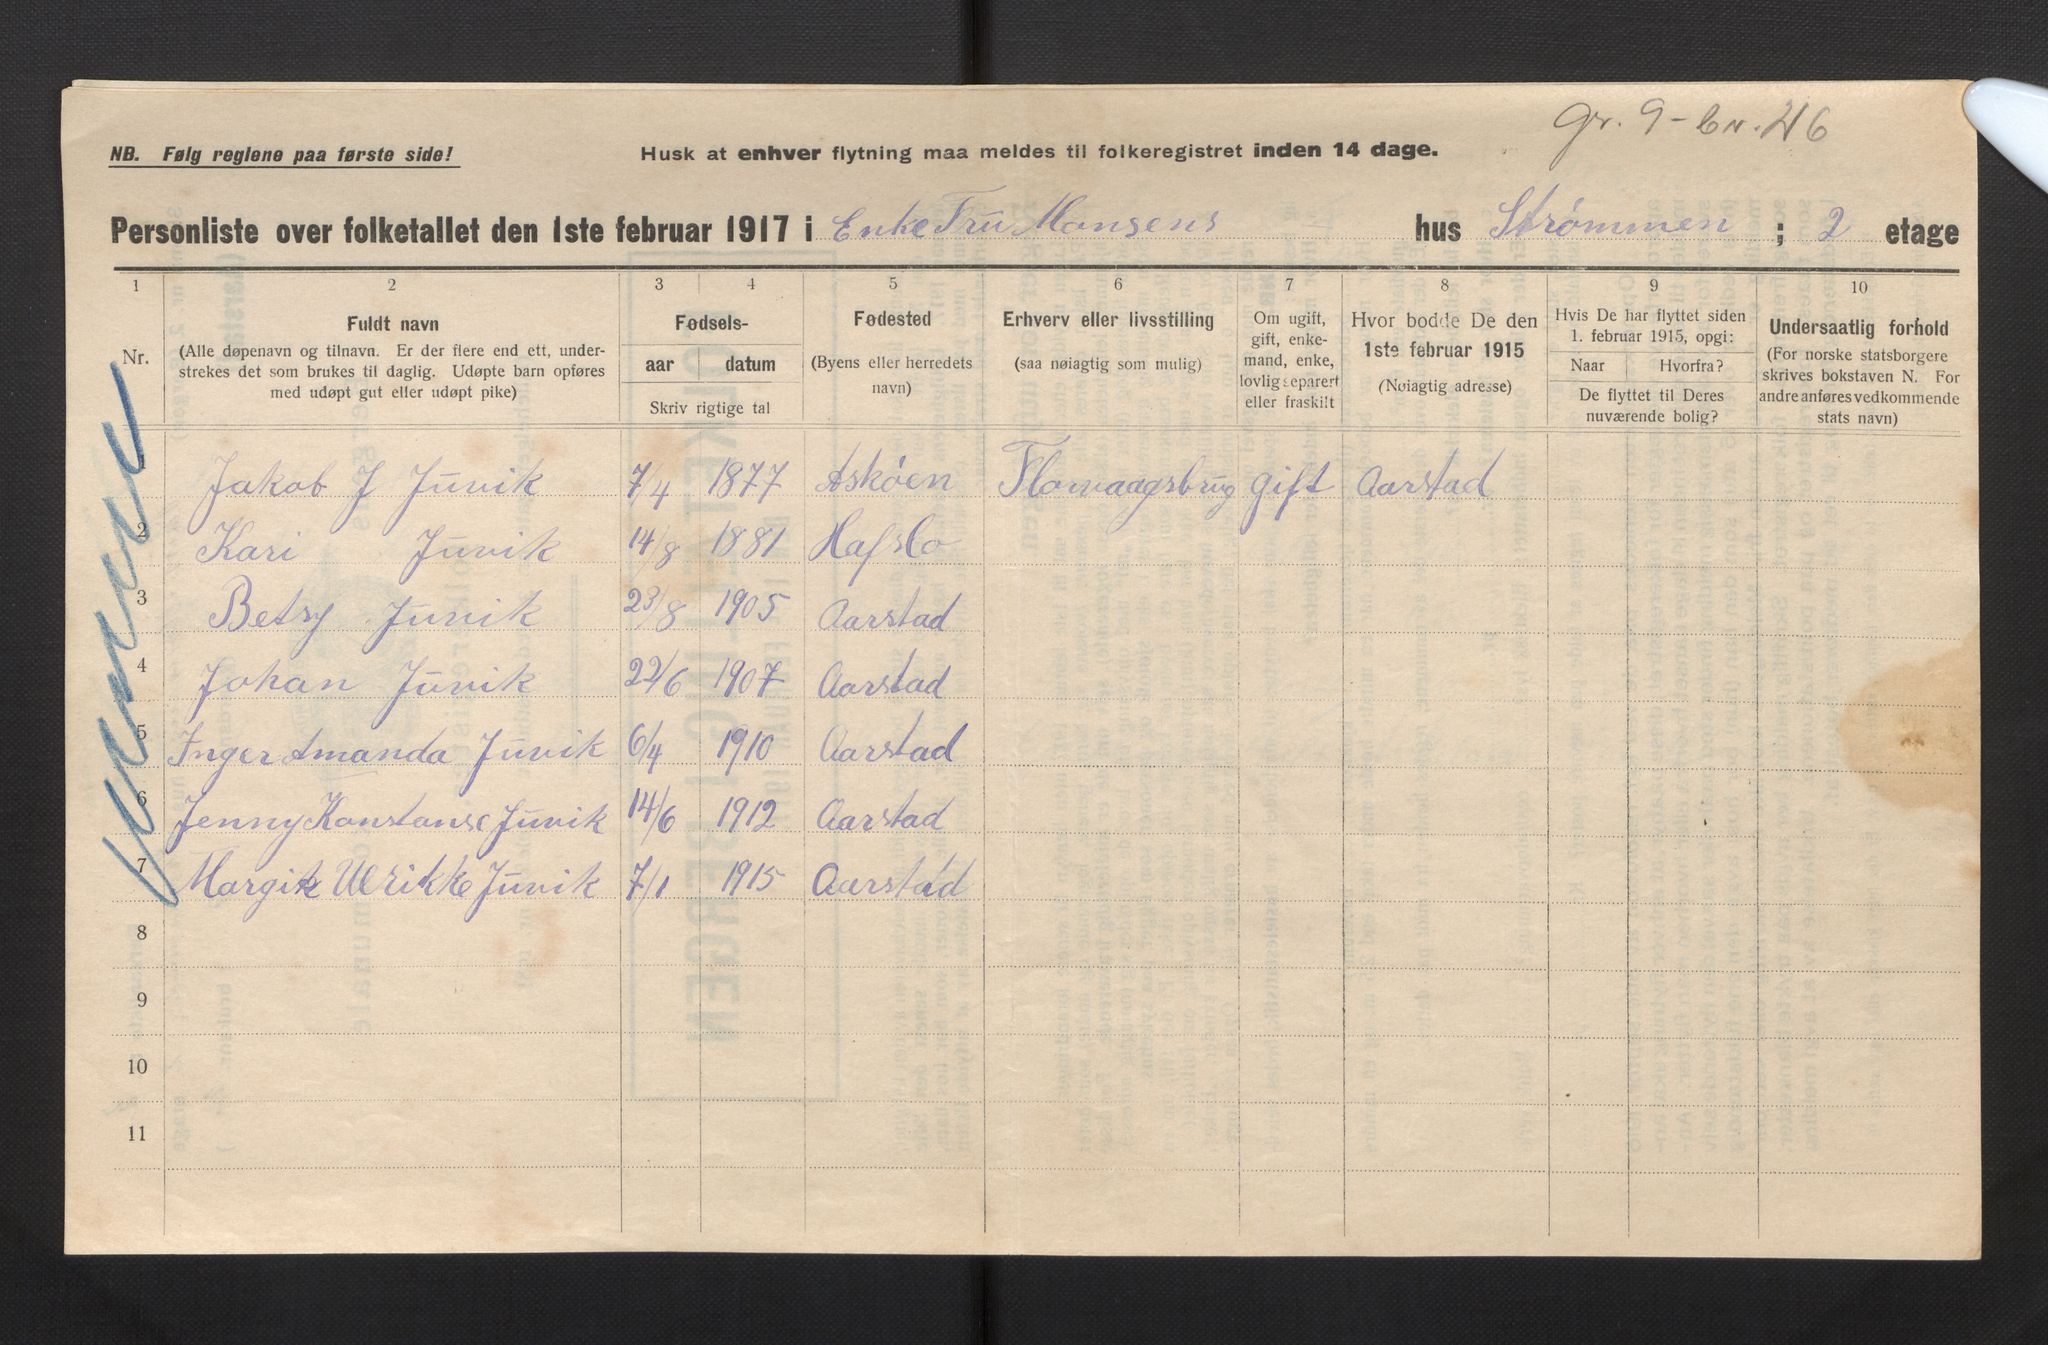 Gr. 9 - Br. 26
NB. Følg reglene paa første side!
Husk at enhver flytning maa meldes til folkeregistret inden 14 dage.
Personliste over folketallet den 1ste februar 1917 i Enke Fru Monsens hus Strømmen ; 2 etage
1 2 3 4 5 6 7 8 9 10
Nr.
Fuldt navn
(Alle døpenavn og tilnavn. Er der flere end ett, under-
strekes det som brukes til daglig. Udøpte barn opføres
med udøpt gut eller udøpt pike)
Fødsels-
aar datum
Skriv rigtige tal
Fødested
(Byens eller herredets
navn)
Erhverv eller livsstilling
(saa nøiagtig som mulig)
Om ugift,
gift, enke-
mand, enke,
lovlig separert
eller fraskilt
Hvor bodde De den
1ste februar 1915
(Nøiagtig adresse)
Hvis De har flyttet siden
1. februar 1915, opgi:
Naar Hvorfra?
De flyttet til Deres
nuværende bolig?
Undersaatlig forhold
(For norske statsborgere
skrives bokstaven N. For
andre anføres vedkommende
stats navn)
1 Jakob J Juvik 7/4 1877 Askøen Florvaagsbrug gift Aarstad
2 Kari Juvik 14/8 1881 Hafslo
3 Betsy Juvik 23/8 1905 Aarstad
4 Johan Juvik 22/6 1907 Aarstad
5 Inger Amanda Juvik 6/4 1910 Aarstad
6 Jenny Konstanse Juvik 14/6 1912 Aarstad
7 Margit Ulrikke Juvik 7/1 1915 Aarstad
8
9
10
11